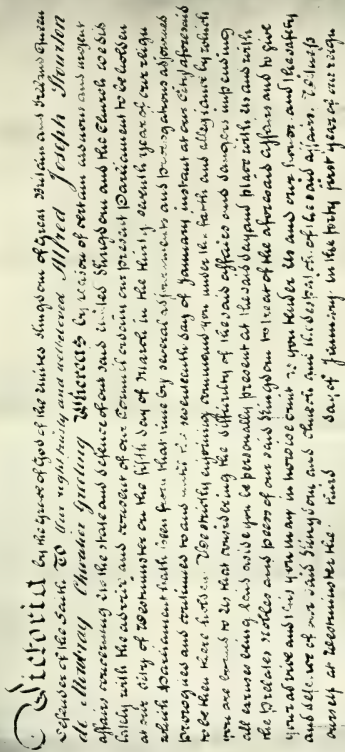 Victoria by the grace of God of the United Kingdom of Great Britain and Ireland Queen
Defender of the Faith To Our right trusty and welbeloved Alfred Joseph Stourton
de Mowbray Chevalier Greeting Whereas by reason of certain arduous and urgent
affairs concerning us the state and defence of our said United Kingdom and the Church we did
lately with the advice and consent of our Council ordain our present Parliament to be holden
at our City of Westminster on the fifth day of March in the thirty seventh year of our reign
which Parliament hath been from that time by several adjournments and prorogations adjourned
prorogued and continued to and until the seventeenth day of January instant at our City aforesaid
to be then there holden We strictly enjoining command you under the faith and allegiance by which
you are bound to us that considering the difficulty of the said affairs and dangers impending
all excuses being laid aside you be personally present at the said day and place with us and with
the prelates nobles and peers of our said Kingdom to treat of the aforesaid affairs and to give
your advice and this you may in nowise omit as you tender us and our honor and the safety
and defence of our said Kingdom and Church and the despatch of the said affairs Witness
ourself at Westminster the third day of January in the forty first year of our reign